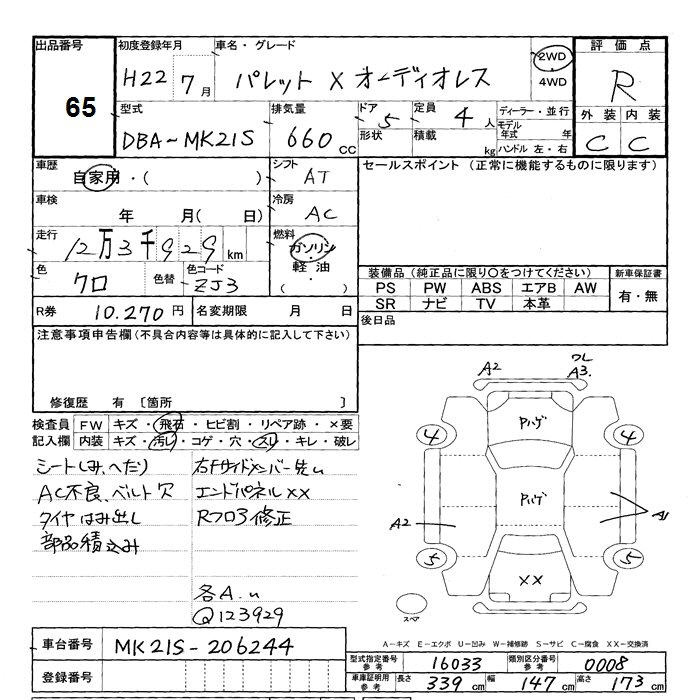 出品番号 65
初度登録年月 H22 7月
車名・グレード パレット X オーディオレス
2WD
4WD
評価点 R
外装 内装
C C
型式 DBA-MK21S
排気量 660 cc
ドア 5
形状
定員 4人
積載 kg
ディーラー・並行
モデル年式 年
ハンドル 左・右
車歴 自家用・( )
シフト AT
セールスポイント (正常に機能するものに限ります)
車検 年 月( 日)
冷房 AC
走行 12万3千929km
燃料 ガソリン
軽油
( )
色 クロ
色替
色コード ZJ3
装備品 (純正品に限り○をつけてください)
新車保証書
PS PW ABS エアB AW
SR ナビ TV 本革
有・無
R券 10.270円
名変期限 月 日
後日品
注意事項申告欄 (不具合内容等は具体的に記入して下さい)
修復歴 有 [箇所 ]
検査員記入欄
FW キズ・飛石・ヒビ割・リペア跡・×要
内装 キズ・汚レ・コゲ・穴・スレ・キレ・破レ
シートしみ、へたり
AC不良、ベルト穴
タイヤはみ出し
部品積込み
右Fサイドメンバー先u
エンドパネルXX
Rフロア修正
各A.u
Q123929
A2
ワレ
A3.
4 Pハゲ 4
Pハゲ
A2 A1
5 XX 5
スペア
A-キズ E-エクボ U-凹み W-補修跡 S-サビ C-腐食 XX-交換済
車台番号 MK21S-206244
登録番号
型式指定番号 参考 16033
類別区分番号 参考 0008
車庫証明用 参考 長さ 339cm 幅 147cm 高さ 173cm